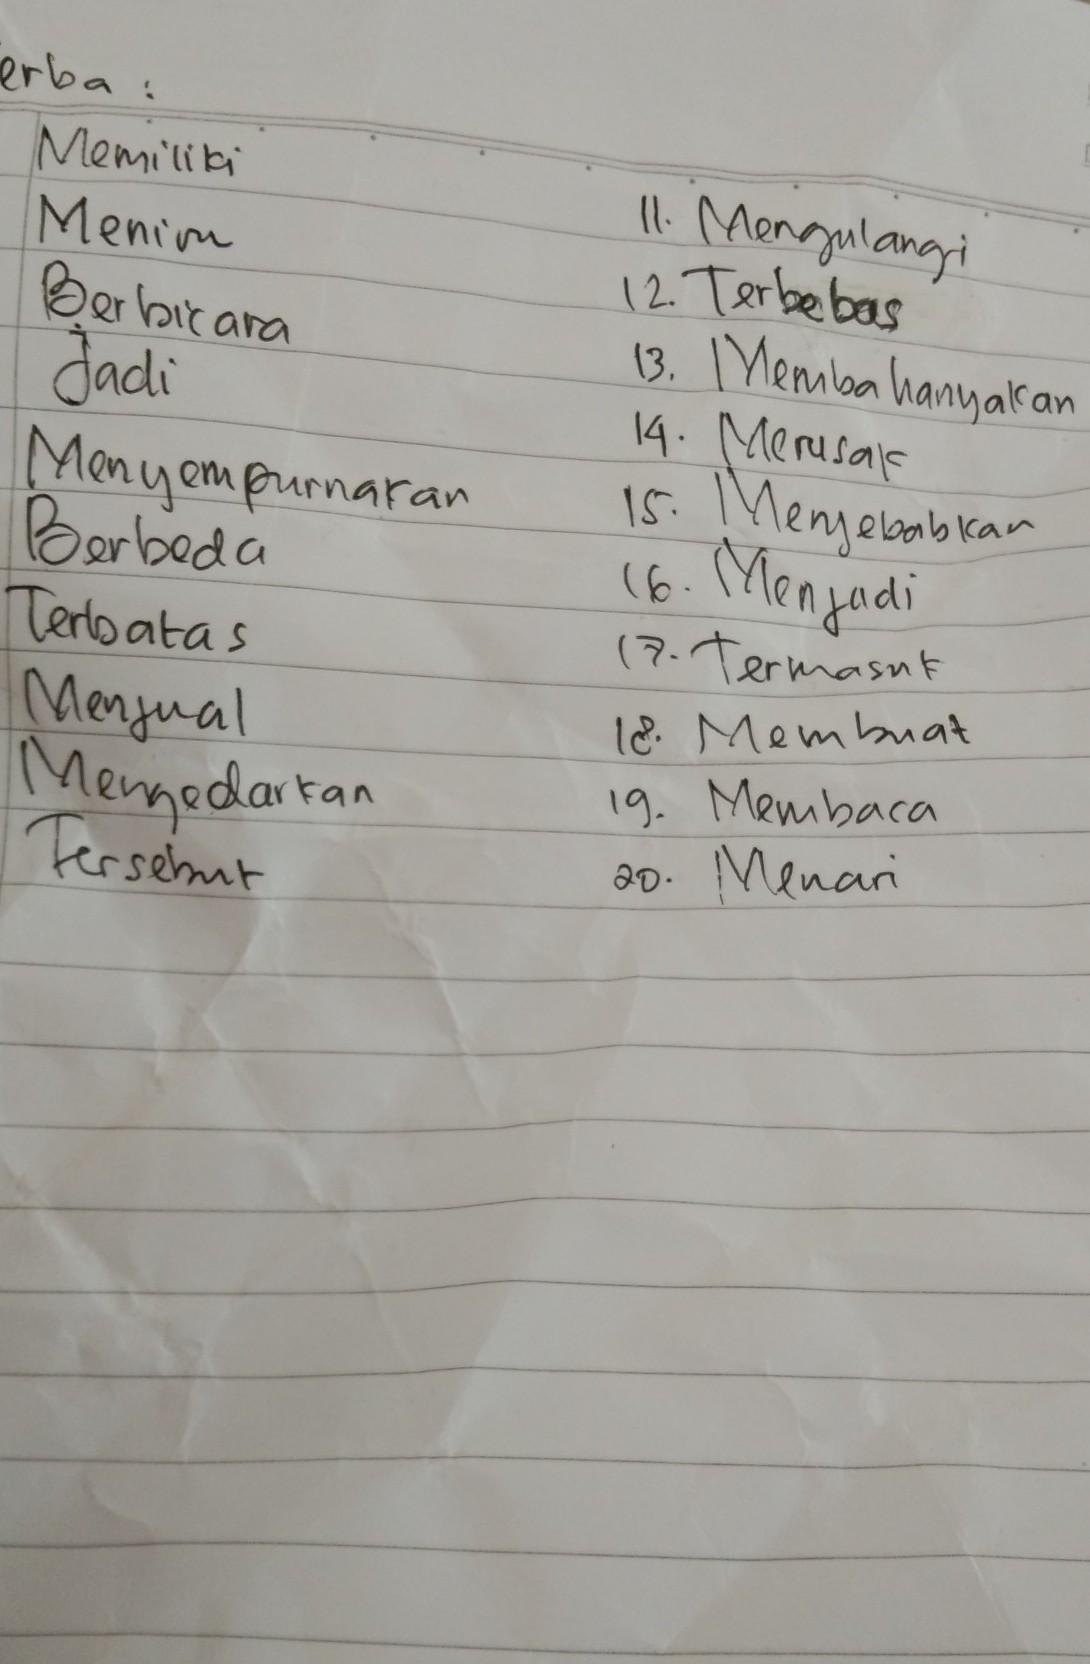 erba :
Memiliki
Meniru
Berbicara
Jadi
Menyempurnakan
Berbeda
Terbatas
Menjual
Mengedarkan
Tersebut
11. Mengulangi
12. Terbebas
13. Membahanyakan
14. Merusak
15. Menyebabkan
16. Menjadi
17. Termasuk
18. Membuat
19. Membaca
20. Menari